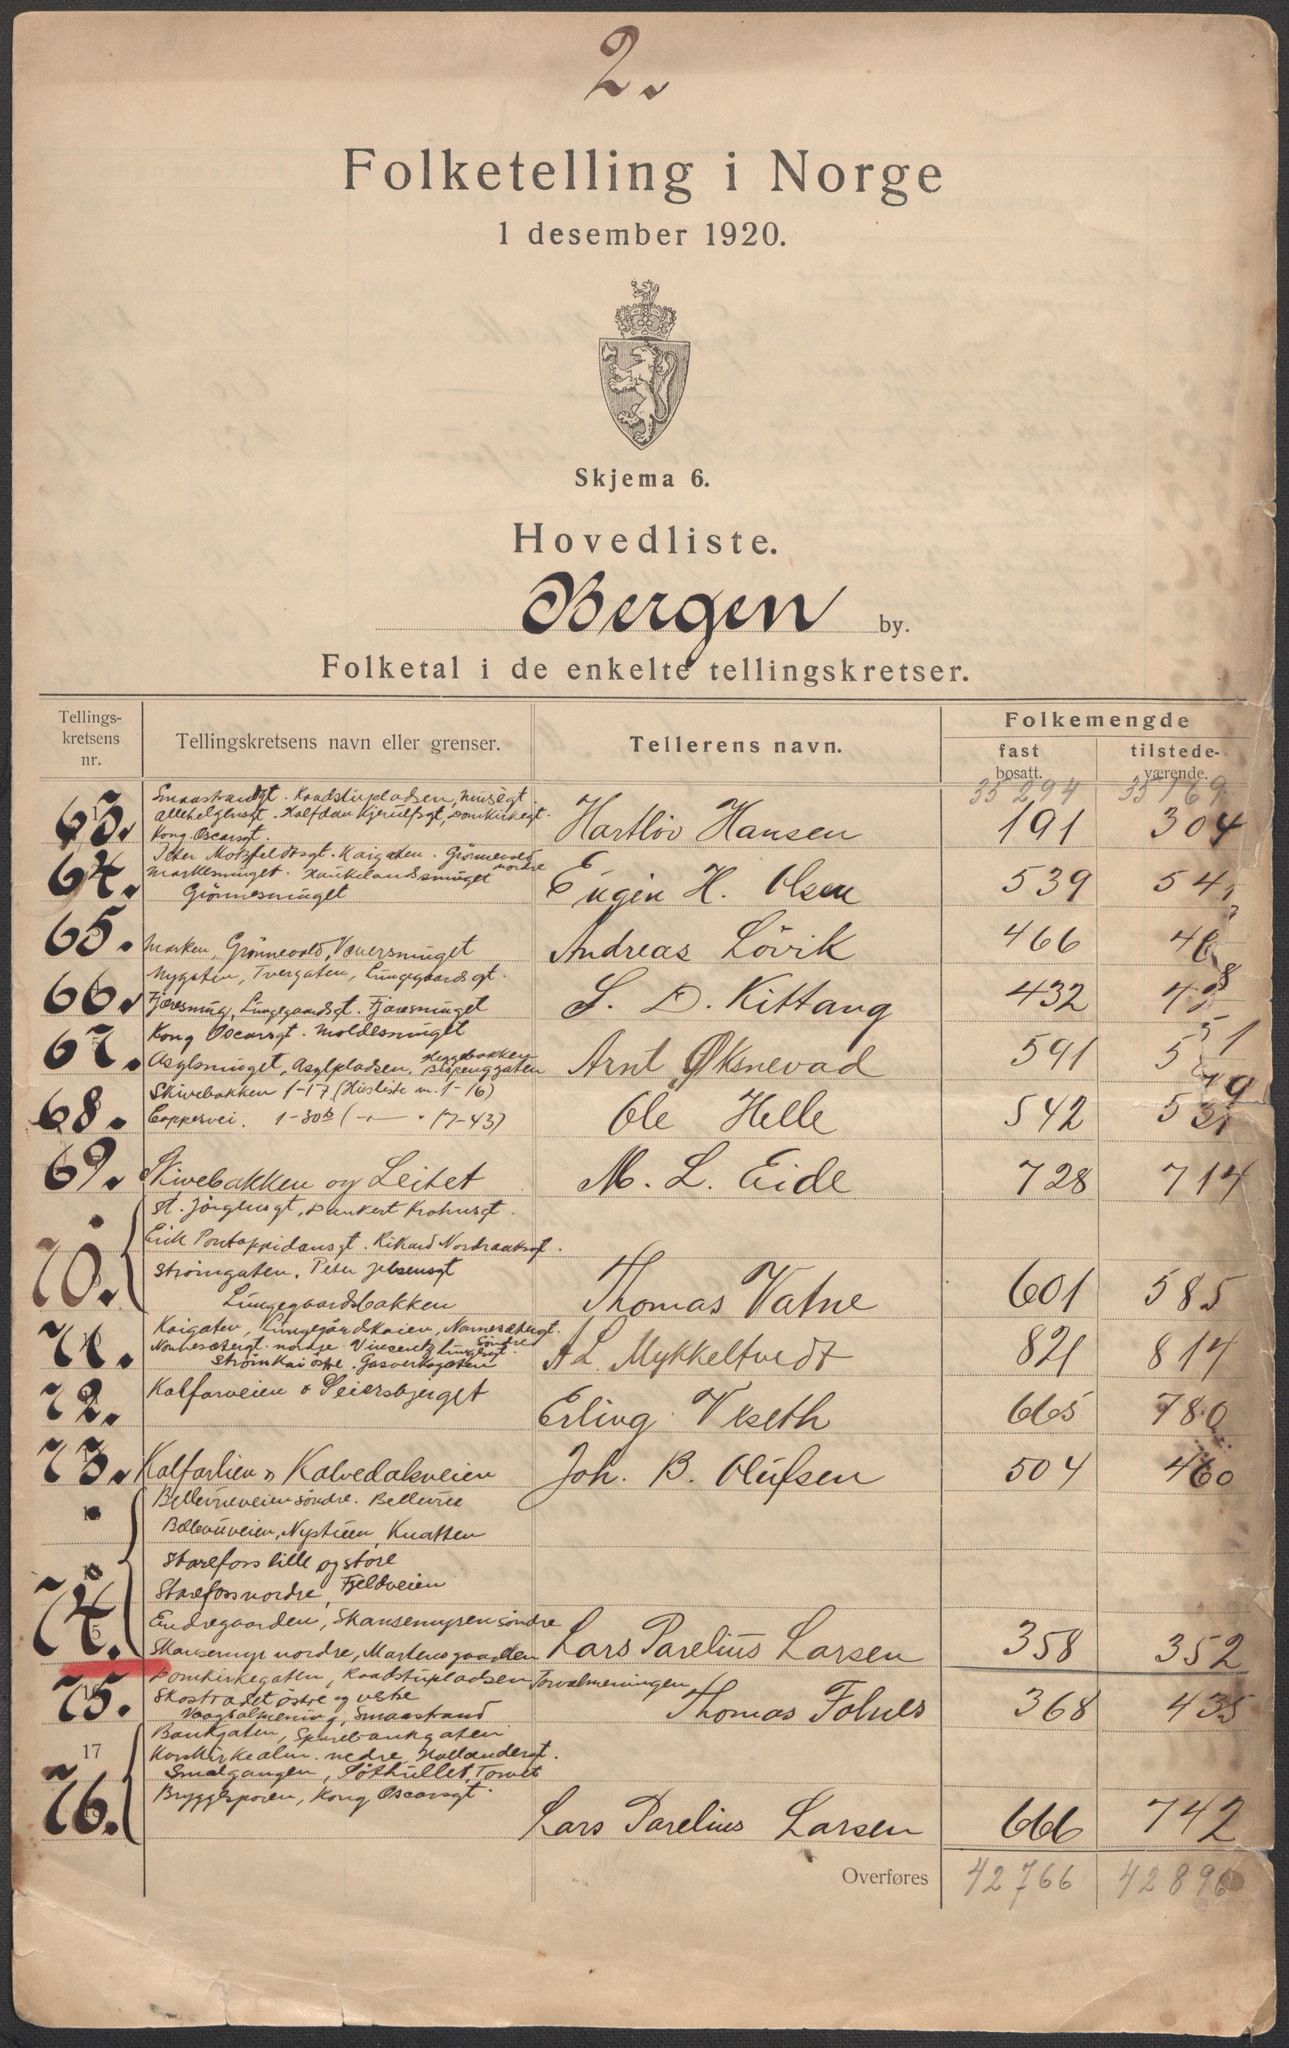 2.
Folketelling i Norge
1 desember 1920.
Skjema 6.
Hovedliste.
Bergen by.
Folketal i de enkelte tellingskretser.
Tellings-
kretsens
nr.
Tellingskretsens navn eller grenser.
Tellerens navn.
Folkemengde
fast
bosatt.
tilstede-
værende.
35294 35169
Smaastrandgt. Raadstupladsen, Musègt
63. Allehelgensgt. Halfdan Kjerulfsgt, Domkirkegt. Hartlöv Hansen 191 304
Kong Oscarsgt.
Peter Motzfeldtsgt. Kaigaten. Grönnevold nordre
64. Markesmuget. Haukelandsmuget Eugen H. Olsen 539 54
Grönnesmuget
65. Marken, Grönnevold, Andreas Lövik 466 46
Nygaten, Tvergaten, Lungegaardsgt.
66. Fjæresmug, Lungegaardsgt. Fjæresmuget S. D. Kittang 432 4
Kong Oscarsgt. Moldesmuget
67. Asylsmuget, Asylpladsen, Heggebakken Bispenggaten Arnt Øksnevad 591 5
Skivebakken 1-17 (Husliste nr. 1-16)
68. 1-30b ( — " — 17-43) Ole Helle 542 53
69. Skivebakken og Leitet M. L. Eide 728 714
St. Jörgensgt, Dankert Krohnsgt.
Erik Pontoppidansgt. Rikard Nordraaksgt.
70. Strömgaten, Peter Jebsensgt
Lungegaardsbakken Thomas Vatne 601 585
Kaigaten, Lungegårdskaien, Nonnesætergt. söndre
71. Nonnesætergt. nordre. Vincentz Lungesgt. A L. Mykkeltvedt 821 814
Strömkai östre. Gasverksgaten
72. Kalfarveien & Seiersbjerget Erling Vkseth 665 780
73. Kalfarlien " Kalvedalsveien Joh. B. Olufsen 504 460
Bellevueveien söndre. Bellevue
Bellevueveien, Nystuen, Knatten
Starefoss lille og store
Starefoss nordre, Fjeldveien
74. Endregaarden, Skansemyren söndre
Skansemyr nordre, Martensgaarden Lars Parelius Larsen 358 352
Domkirkegaten, Raadstupladsen, Torvalmeningen
75. Skostrædet östre og vestre Thomas Folnes 368 435
Vaagsalmening, Smaastrand
Bankgaten, Sparebankgaten
17 Korskirkealm. nedre, Hollandergt.
Smalgangen, Söthullet, Torvet
76. Bryggesporen, Kong Oscarsgt.
Lars Parelius Larsen 666 742
Overføres 42766 42896